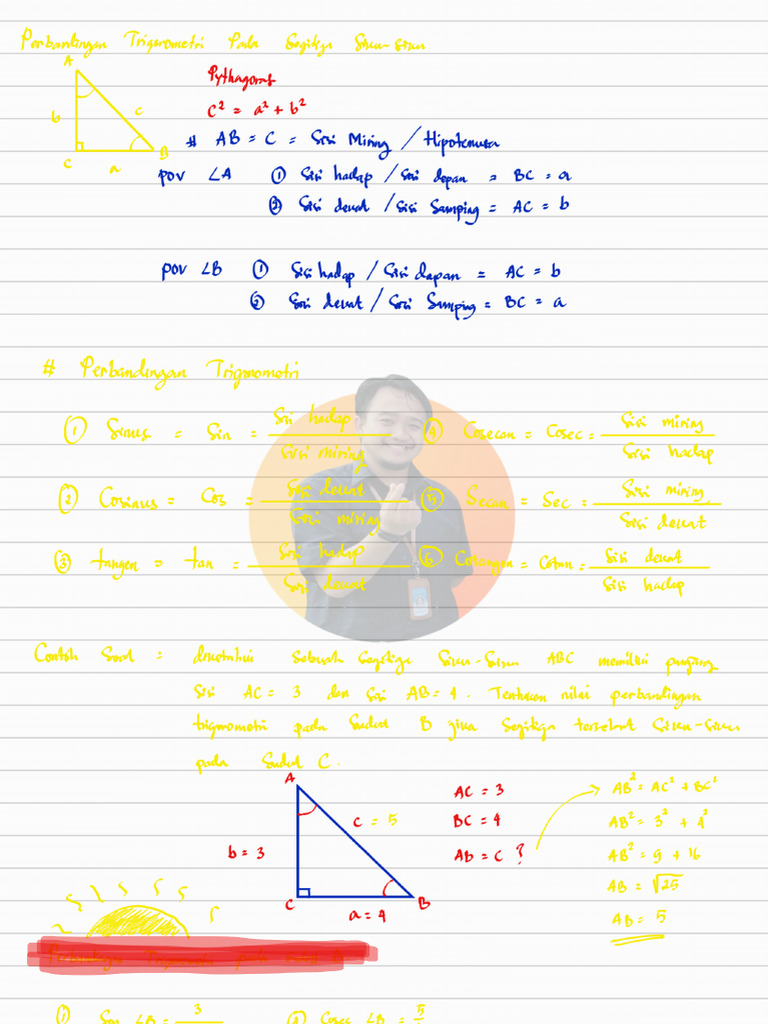 Perbandingan Trigonometri Pada Segitiga Siku-siku
A
b
c
C
a
B
Pythagoras
c² = a² + b²
# AB = C = Sisi Miring / Hipotenusa
POV ∠A ① Sisi hadap / Sisi depan = BC = a
② Sisi dekat / Sisi Samping = AC = b
POV ∠B ① Sisi hadap / Sisi depan = AC = b
② Sisi dekat / Sisi Samping = BC = a
# Perbandingan Trigonometri
① Sinus = Sin = Sisi hadap / Sisi miring
④ Cosecan = Cosec = Sisi miring / Sisi hadap
② Cosinus = Cos = Sisi dekat / Sisi miring
⑤ Secan = Sec = Sisi miring / Sisi dekat
③ tangen = tan = Sisi hadap / Sisi dekat
⑥ Cotangen = Cotan = Sisi dekat / Sisi hadap
Contoh Soal = diketahui Sebuah Segitiga Siku-Siku ABC memiliki panjang
Sisi AC = 3 dan sisi AB = 4. Tentukan nilai perbandingan
trigonometri pada Sudut B jika Segitiga tersebut Siku-siku
pada Sudut C.
A
c = 5
b = 3
C
a = 4
B
AC = 3
BC = 4
AB = C ?
AB² = AC² + BC²
AB² = 3² + 4²
AB² = 9 + 16
AB = √25
AB = 5
Perbandingan Trigonometri pada
① Sin ∠B = 3
④ Cosec ∠B = 5